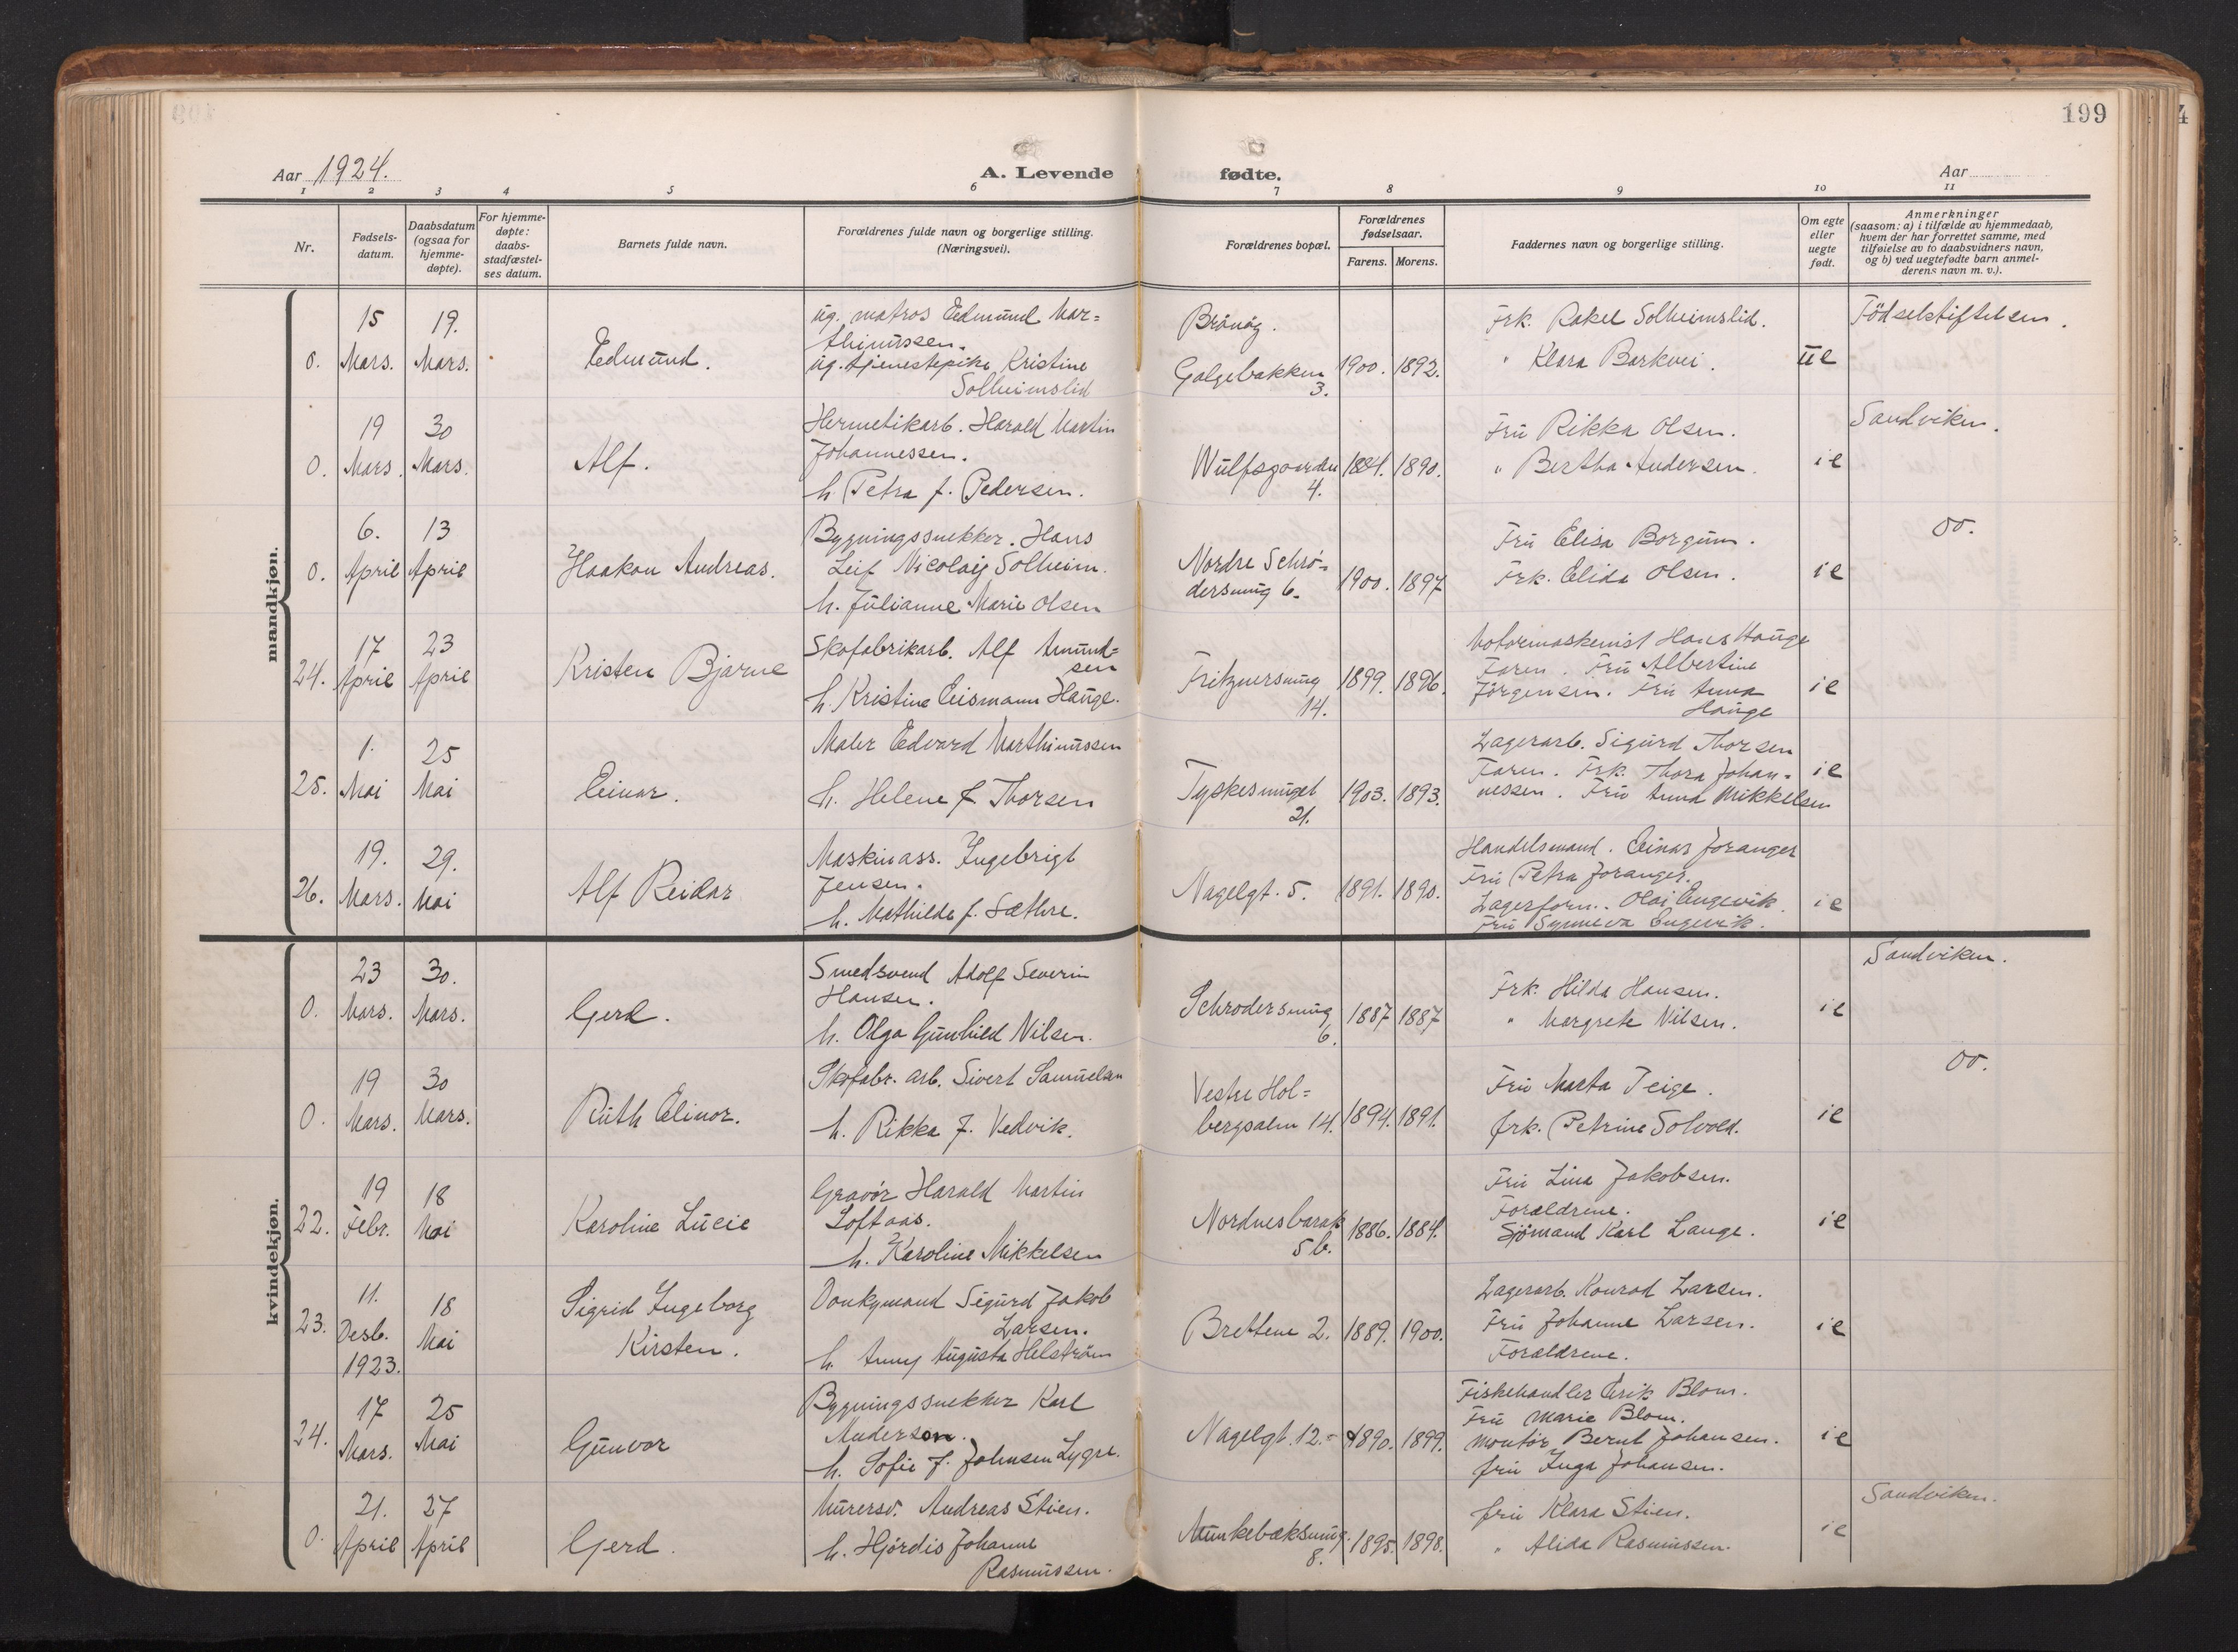 199
Aar 1924.
A. Levende fødte.
Aar
1 2 3 4 5 6 7 8 9 10 11
Nr.
Fødsels-
datum.
Daabsdatum
(ogsaa for
hjemme-
døpte).
For hjemme-
døpte:
daabs-
stadfæstel-
ses datum.
Barnets fulde navn.
Forældrenes fulde navn og borgerlige stilling.
(Næringsvei).
Forældrenes bopæl.
Forældrenes
fødselsaar.
Farens. Morens.
Faddernes navn og borgerlige stilling.
Om egte
eller
uegte
født.
Anmerkninger
(saasom: a) i tilfælde av hjemmedaab,
hvem der har forrettet samme, med
tilføielse av to daabsvidners navn,
og b) ved uegtefødte barn anmel-
derens navn m. v.).
mandkjøn.
0.
15
Mars.
19.
Mars.
Edmund.
ug. matros Edmund Mar=
thinussen.
ug. tjenestepike Kristine
Solheimslid
Brönöy.
Galgebakken
3.
1900. 1892.
Frk. Rakel Solheimslid.
" Klara Barkvei.
ue
Födselstiftelsen.
0.
19
Mars.
30
Mars.
Alf.
Hermetikarb. Harald Martin
Johannessen.
h. Petra f. Pedersen.
Wulfsgaarden
4.
1884. 1890.
Fru Rikka Olsen.
" Bertha Andersen.
ie
Sandviken.
0.
6.
April
13
April
Haakon Andreas.
Bygningssnekker. Hans
Leif Nicolaig Solheim.
h. Julianne Marie Olsen
Nordre Schrö-
dersmug 6.
1900. 1897
Fru Elisa Borgum.
Frk. Elida Olsen.
ie
oo.
24.
17
April
23
April
Kristen Bjarne
Skofabrikarb. Alf Amund=
sen
h. Kristine Eismann Hauge.
Fritznersmug
14.
1899. 1896.
Motormaskinist Hans Hauge
Faren. Fru Albertine
Jörgensen. Fru Anna
Hauge
ie
25.
1.
Mai
25
Mai
Einar.
Maler Edvard Marthinussen
h. Helene f. Thorsen
Tyskesmuget
21.
1903. 1893.
Lagerarb. Sigurd Thorsen
Faren. Frk. Thora Johan-
nessen. Fru Anna Mikkelsen
ie
26.
19.
Mars.
29.
Mai
Alf Reidar
Maskinass. Ingebrigt
Jensen.
h. Mathilde f. Sæthre.
Nagelgt. 5.
1891. 1890.
Handelsmand. Einar Joranger
Fru Petra Joranger.
Lagerform. Olai Engevik
Fru Synneva Engevik.
ie
kvindekjøn.
0.
23
Mars.
30.
Mars.
Gerd.
Smedsvend Adolf Severin
Hansen.
h. Olga Gunhild Nilsen.
Schrodersmug
6.
1887 1887
Frk. Hilda Hansen.
" Margrete Nilsen.
ie
Sandviken.
0.
19
Mars.
30
Mars.
Ruth Elinor.
Skofabr. arb. Sivert Samuelsen
h. Rikka f. Vedvik.
Vestre Hol=
bergsalm 14.
1894. 1891.
Fru Marta Teige.
frk. Petrine Solvold.
ie
oo.
22.
19
Febr.
18
Mai
Karoline Lucie
Gravör Harald Martin
Loftaas.
h. Karoline Mikkelsen
Nordnesbarak
5 b.
1886. 1884.
Fru Lina Jakobsen.
Forældrene.
Sjömand Karl Lange.
ie
23.
11.
Desb.
1923.
18
Mai
Sigrid Ingeborg
Kirsten.
Donkymand Sigurd Jakob
Larsen.
h. Anny Augusta Helström
Brettene 2.
1889. 1900.
Lagerarb. Konrad Larsen.
Fru Johanne Larsen.
Forældrene.
ie
24.
17
Mars.
25
Mai
Gunvor
Bygningssnekker Karl
Anderson.
h. Sofie f. Johnsen Lygre.
Nagelgt. 12.-
1890. 1899.
Fiskehandler Erik Blom.
Fru Marie Blom.
Montör Bernt Johansen.
fru Inga Johansen.
ie
0.
21.
April
27
April
Gerd.
Murersv. Andreas Stien.
h. Hjördis Johanne
Rasmussen.
Munkebæksmug.
8.
1895. 1898.
fru Klara Stien.
" Alida Rasmussen.
ie
Sandviken.